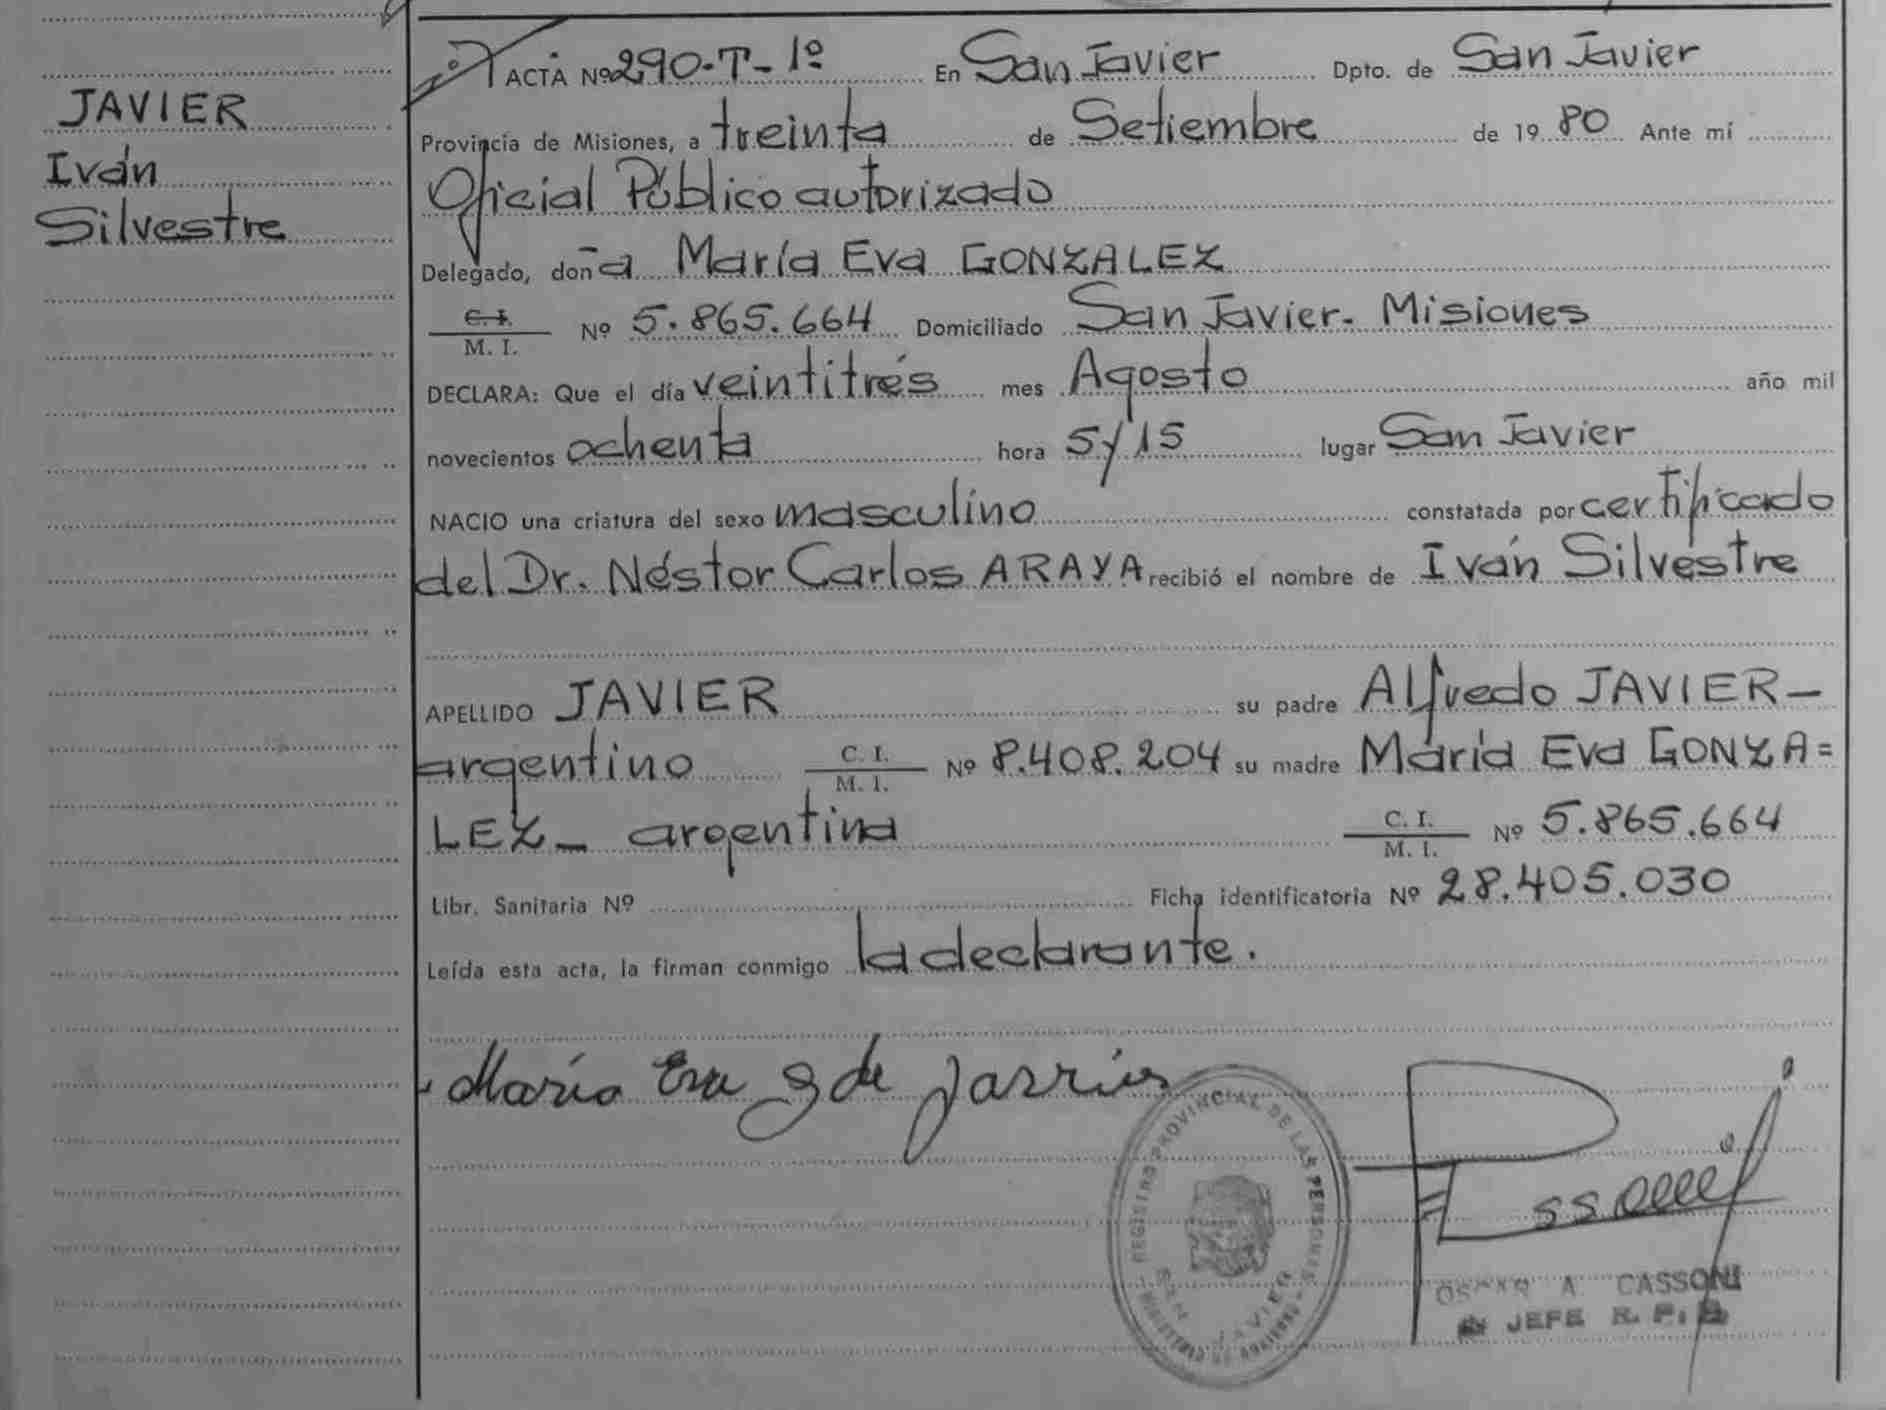 JAVIER
Iván
Silvestre
ACTA Nº 290-T-1º En San Javier Dpto. de San Javier
Provincia de Misiones, a treinta de Setiembre de 19 80 Ante mí
Oficial Público autorizado
Delegado, don a María Eva GONZALEZ
C. I.
M. I. Nº 5.865.664 Domiciliado San Javier- Misiones
DECLARA: Que el día veintitrés mes Agosto año mil
novecientos ochenta hora 5y15 lugar San Javier
NACIO una criatura del sexo masculino constatada por certificado
del Dr. Néstor Carlos ARAYA recibió el nombre de Iván Silvestre
APELLIDO JAVIER su padre Alfredo JAVIER-
argentino C. I. M. I. Nº 8.408.204 su madre María Eva GONZA=
LEZ- argentina C. I. M. I. Nº 5.865.664
Libr. Sanitaria Nº Ficha identificatoria Nº 28.405.030
Leída esta acta, la firman conmigo la declarante.
María Eva G de
REGISTRO PROVINCIAL DE LAS PERSONAS
OSCAR A. CASSONI
JEFE R. P.